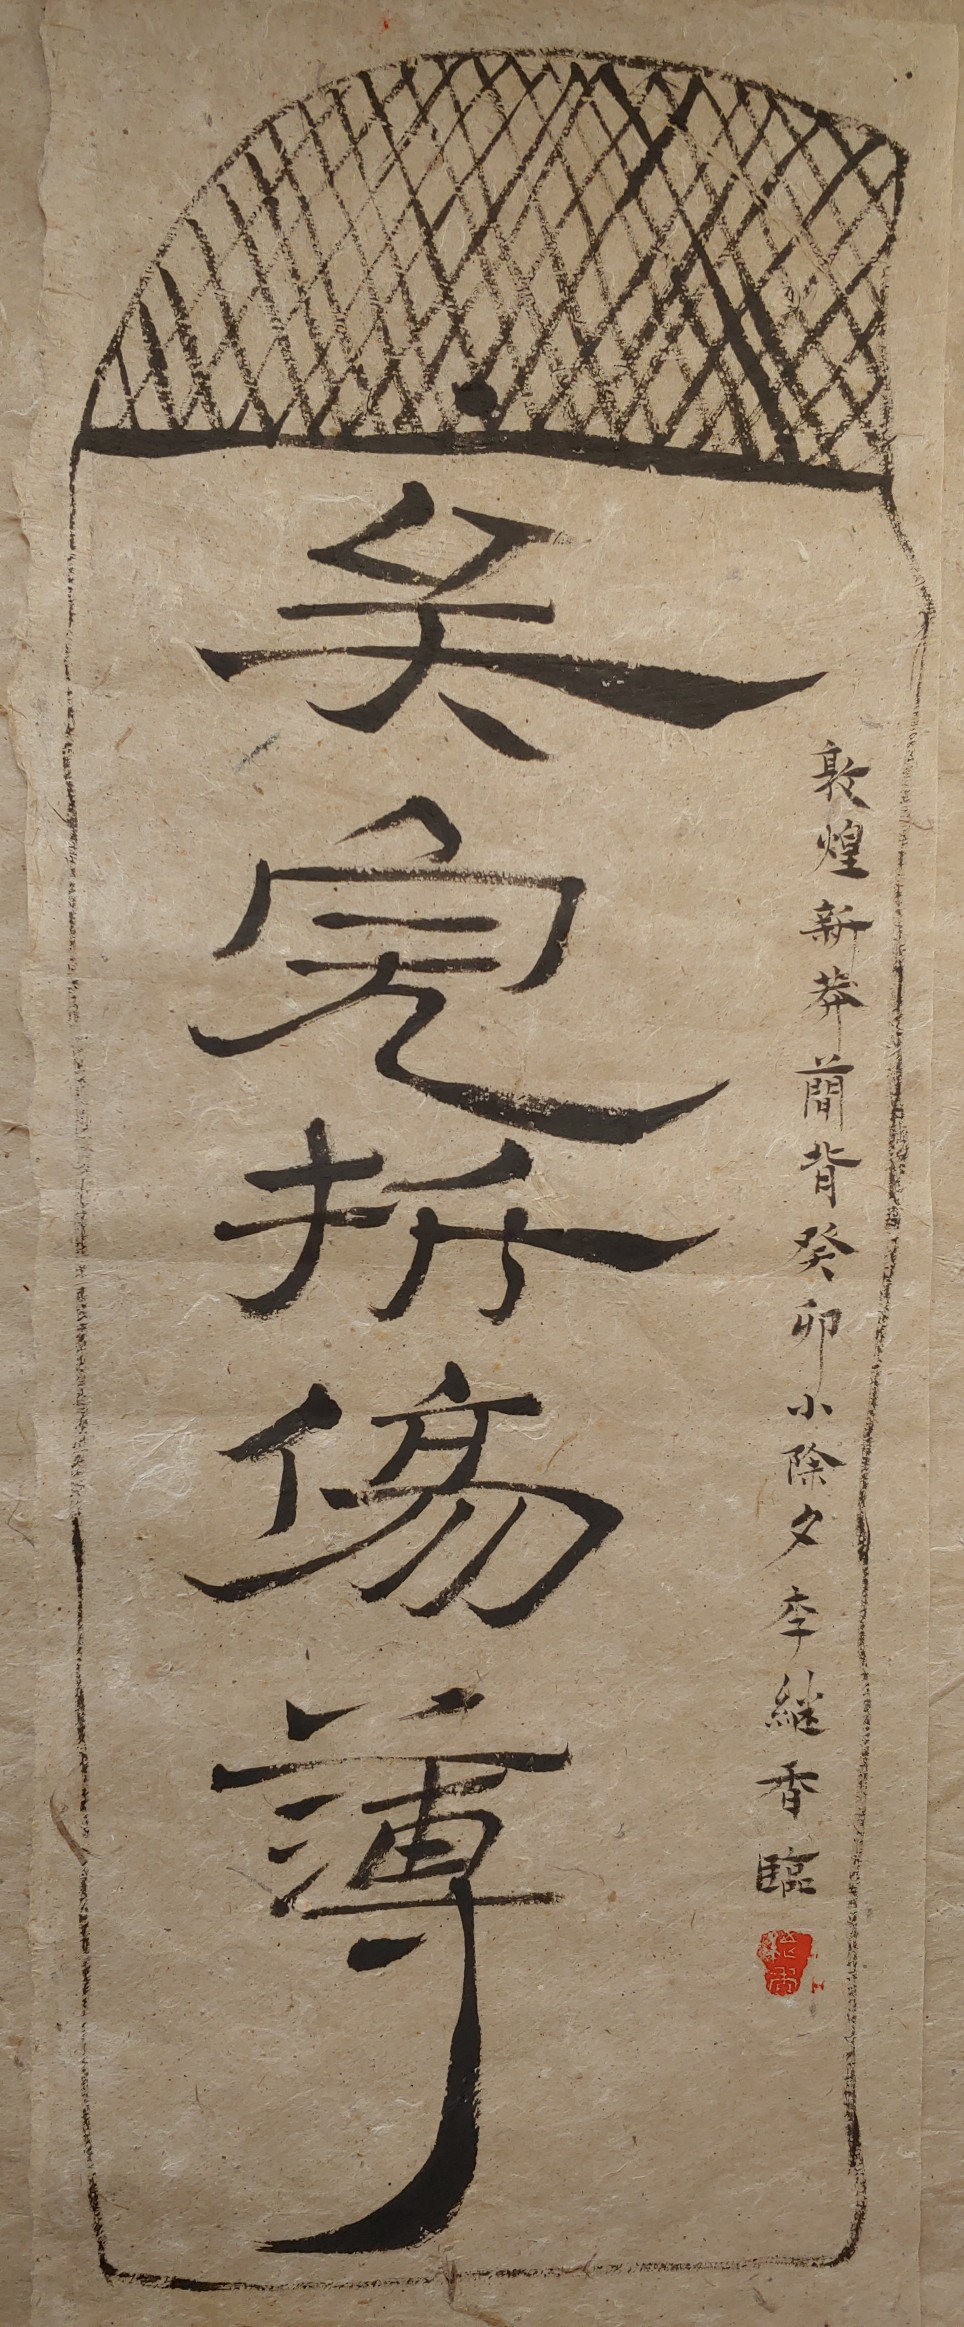 完折傷薄
敦煌新莽簡背癸卯小除夕李継香臨